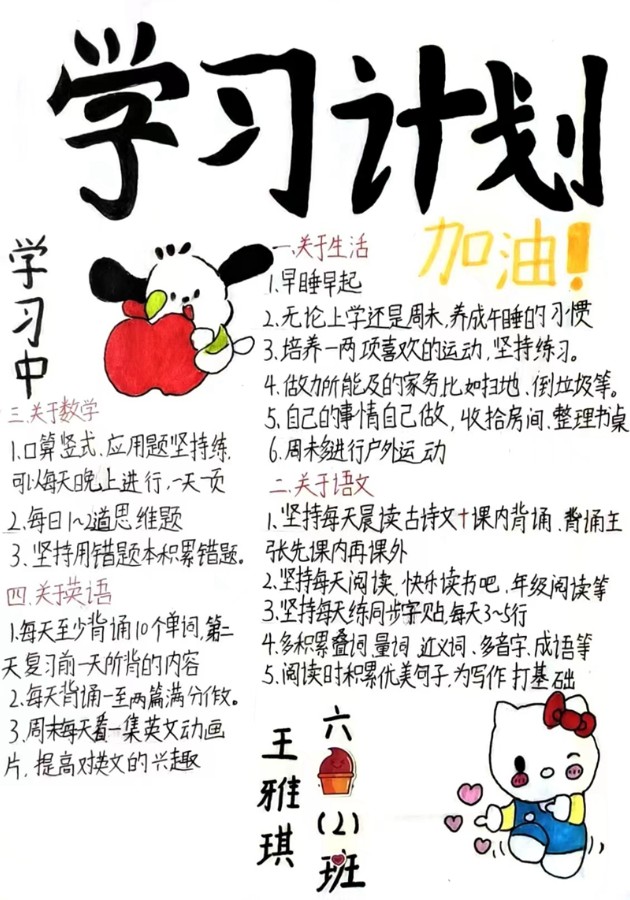 学习计划
加油!
学习中
一.关于生活
1.早睡早起
2.无论上学还是周末,养成午睡的习惯
3.培养一两项喜欢的运动,坚持练习。
4.做力所能及的家务比如扫地、倒垃圾等。
5.自己的事情自己做,收拾房间、整理书桌
6.周末多进行户外运动
二.关于语文
1.坚持每天晨读古诗文+课内背诵、背诵主
张先课内再课外
2.坚持每天阅读,快乐读书吧、年级阅读等
3.坚持每天练同步字贴,每天3~5行
4.多积累叠词、量词、近义词、多音字、成语等
5.阅读时积累优美句子,为写作打基础
三.关于数学
1.口算竖式、应用题坚持练.
可以每天晚上进行,一天一页
2.每日1~2道思维题
3.坚持用错题本积累错题。
四.关于英语
1.每天至少背诵10个单词,第二
天复习前一天所背的内容
2.每天背诵一至两篇满分作文。
3.周末每天看一集英文动画
片,提高对英文的兴趣
六(2)班
王雅琪